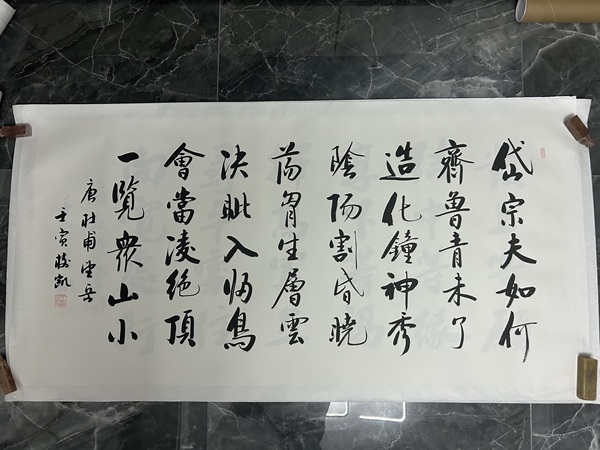 岱宗夫如何
齊魯青未了
造化鐘神秀
陰陽割昏曉
蕩胷生層雲
決眦入歸鳥
會當凌絕頂
一覽衆山小
唐杜甫望岳
壬寅